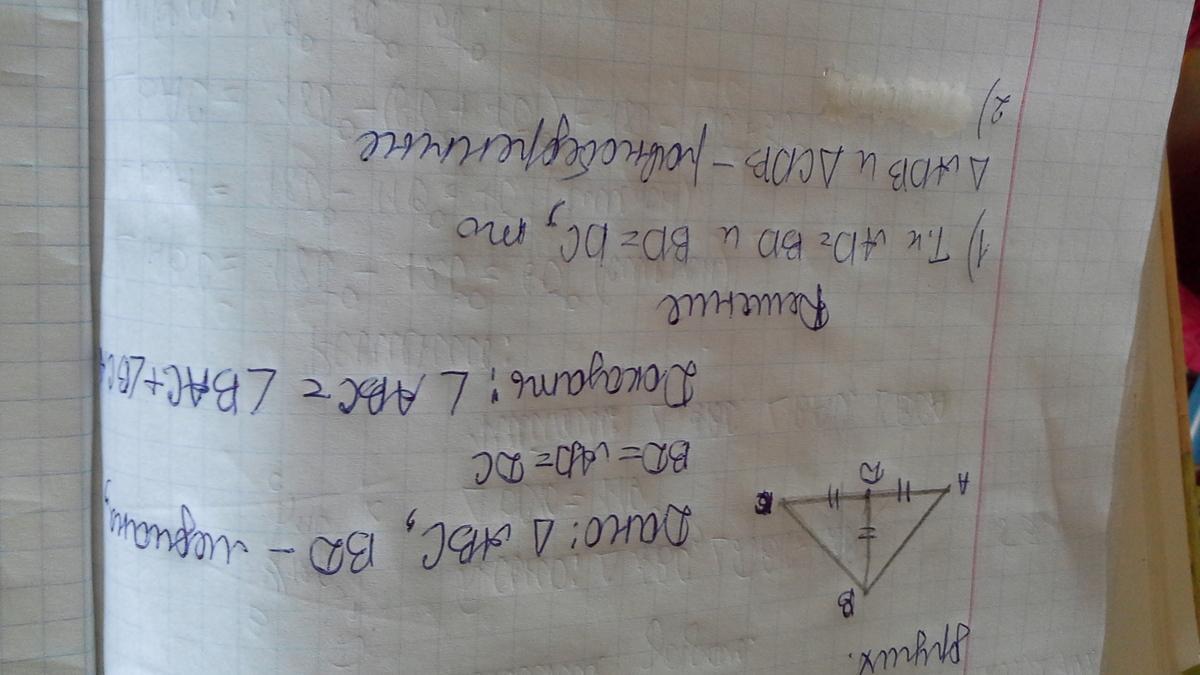 других.
B
A D C
Дано: Δ ABC, BD - медиана,
BD = AD = DC
Доказать: ∠ ABC = ∠ BAC + ∠ BCA
Решение
1) Т.к AD = BD и BD = DC, то
Δ ADB и Δ CDB - равнобедренные
2)